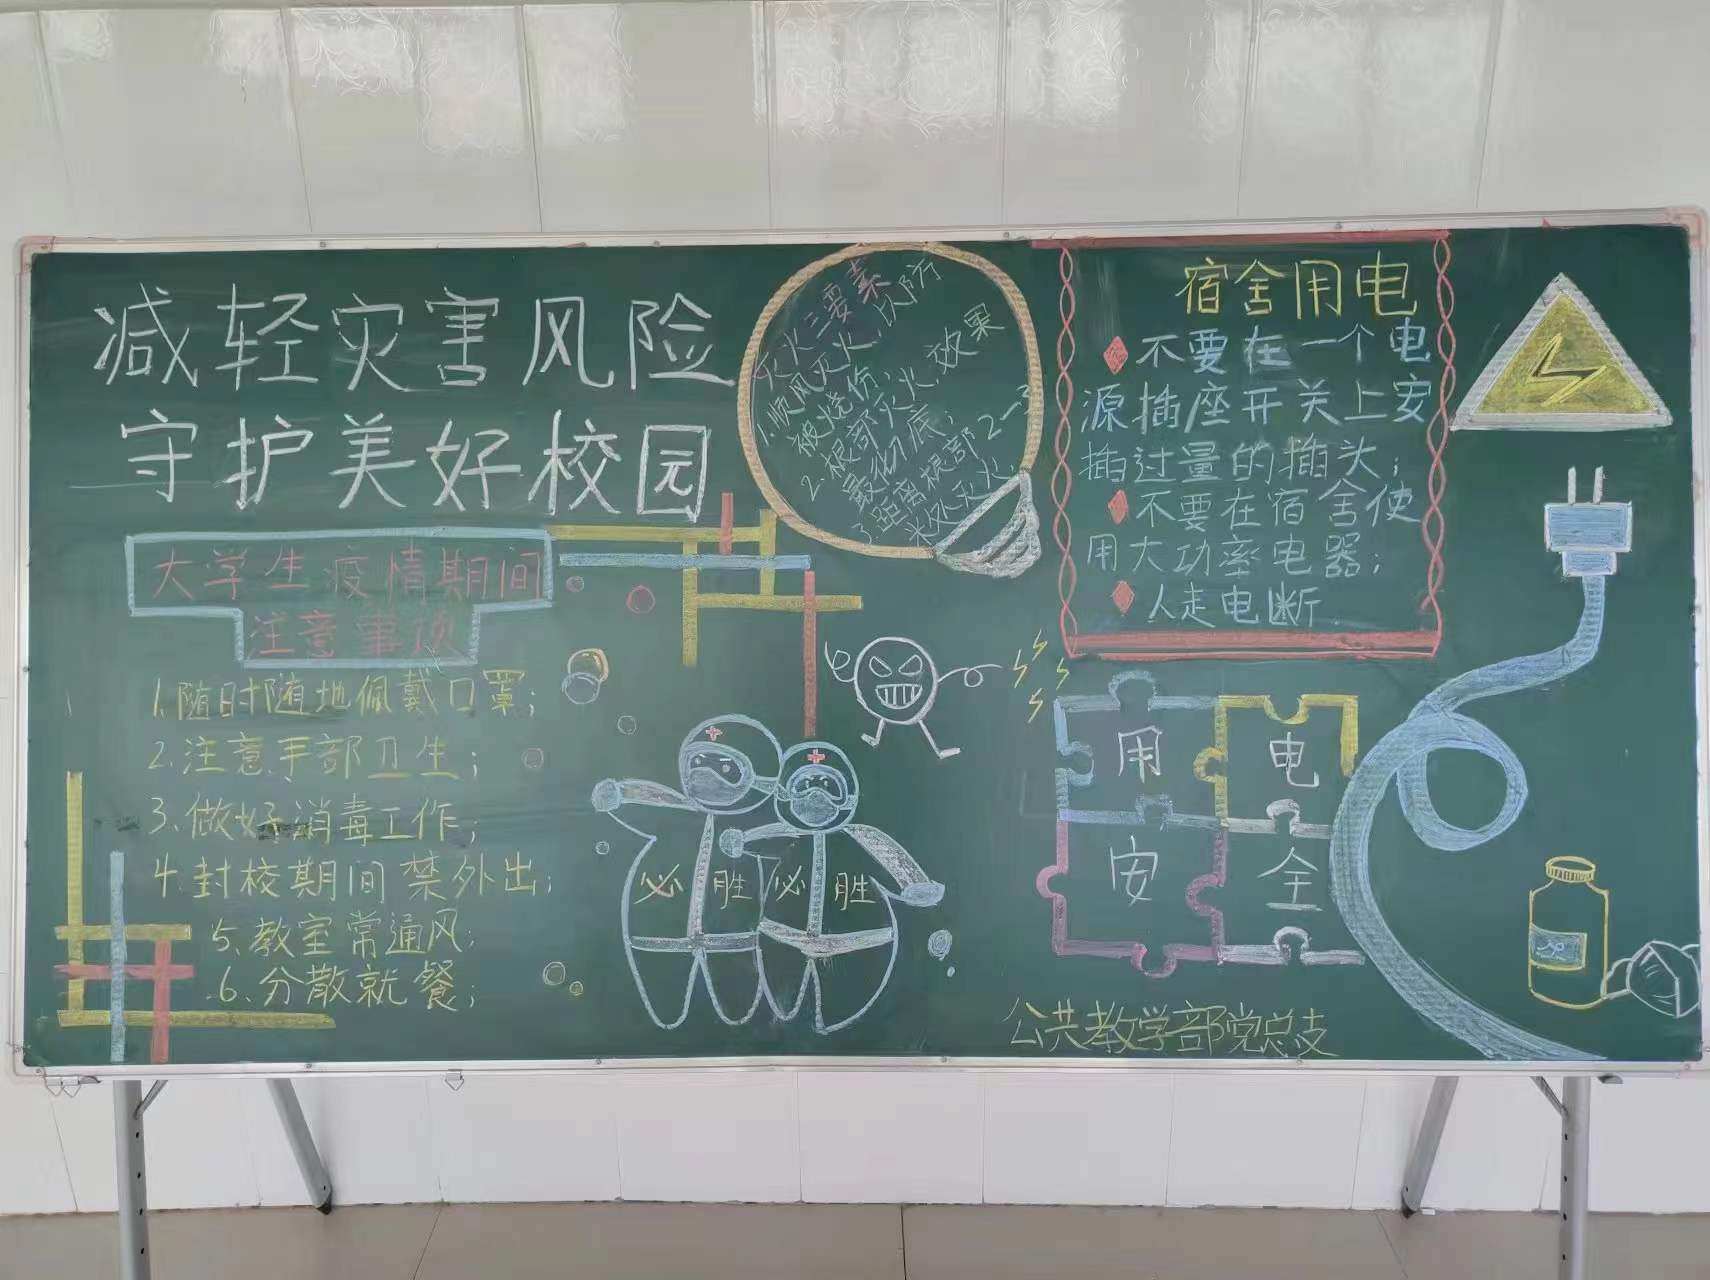 减轻灾害风险
守护美好校园
大学生疫情期间
注意事项
1.随时随地佩戴口罩;
2.注意手部卫生;
3.做好消毒工作;
4.封校期间禁外出;
5.教室常通风;
6.分散就餐;
灭火三要素
1.顺风灭火,以防
被烧伤;
2.根部灭火,效果
最彻底;
3.距离根部2-3
米处灭火;
宿舍用电
不要在一个电
源插座开关上安
插过量的插头;
不要在宿舍使
用大功率电器;
人走电断
必胜
必胜
用电
安全
公共教学部党总支